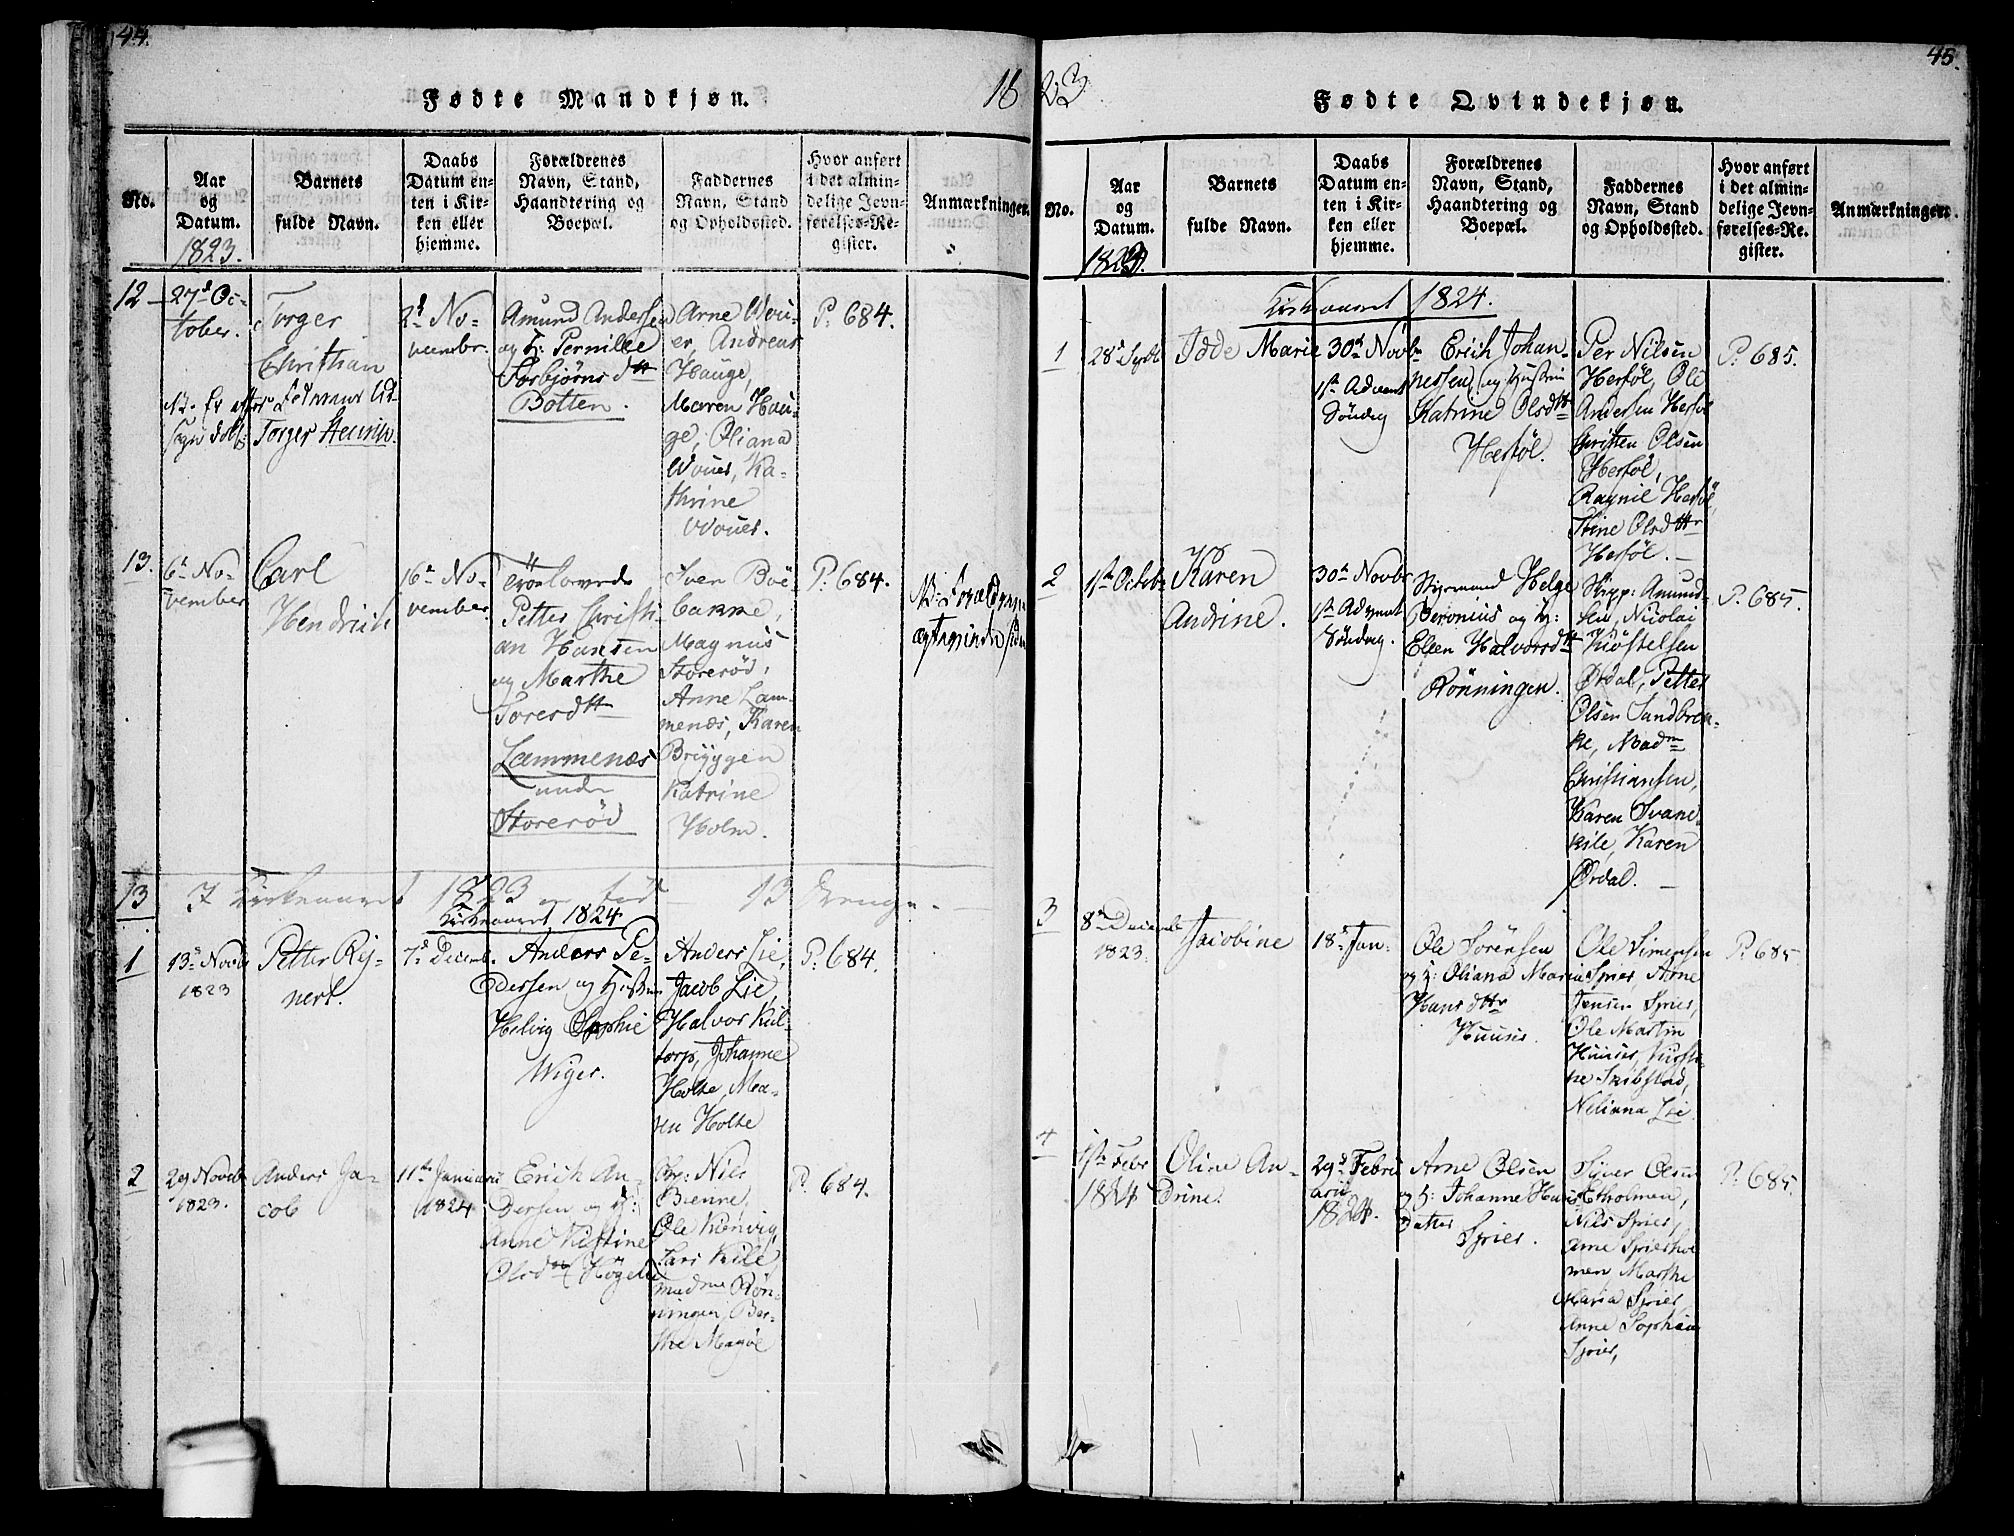 44.
Fødte Mandkjøn.
18
No.
Aar
og
Datum.
1823.
Barnets
fulde Navn.
Daabs
Datum en-
ten i Kir-
ken eller
hjemme.
Forældrenes
Navn, Stand,
Haandtering og
Boepæl.
Faddernes
Navn, Stand
og Opholdssted.
Hvor anført
i det almin-
delige Jevn-
førelses-Re-
gister.
Anmærkninger.
12
27d Oc-
tober.
Torger
Christian
2d No-
vembr.
Amund Andersen
og H: Pernille
Torbjørnsdttr
Botten.
Arne Wou-
er, Andreas
Hauge,
Maren Hou-
ge, Oliana
Wouer, Ka-
thrine
Wouer.
P. 684.
Torger
13.
6te No-
vember
Carl
Hendrich
16te No-
vember
Petter Christi-
an Hansen
og Marthe
Soresdttr
Lammenæs
under
Storerød
Sven Boe-
bakke,
Magnus
Storerød,
Anne Lam-
menæs, Karen
Bryggen
Katrine
Holm.
P. 684.
13
I Kirkeaaret 1823 er fød 13 Drenge.
Kirkeaaret 1824
1
13de Novb
1823
Petter Rej-
nert.
7de Decemb.
Anders Pe-
dersen og Hustru
Helvig Sophie
Wiger.
Anders Lie,
Jacob Lie,
Halvor Kil-
torp, Johanne
Holte, Ma-
ren Holte
P. 684.
2
29 Novbr
1823.
Anders Ja-
cob
11te Januari
1824
Erich An-
dersen og H:
Anne Kistine
Olsdttr Høgeli
Nils
Bienne,
Ole Kienvig,
Lars Kile,
madme Røn-
ningen, Ber-
the Magøe
P. 684.
45.
23
Fødte Qvindekjøn.
No.
Aar
og
Datum.
1823.
Barnets
fulde Navn.
Daabs
Datum en-
ten i Kir-
ken eller
hjemme.
Forældrenes
Navn, Stand,
Haandtering og
Boepæl.
Faddernes
Navn, Stand
og Opholdssted.
Hvor anført
i det almin-
delige Jevn-
førelses-Re-
gister.
Anmærkninger.
Kirkeaaret 1824.
1
Idde Marie
30te Novbr
1ste Advent
Søndag
Erich Johan-
nessen og Hustru
Katrine Olsdttr
Herføl.
Per Nilsen
Herføl, Ole
Andersen Herføl
Christen Olsen
Herføl,
Ragnil Herføl,
Stine Olsdttr
Herføl.
P. 685.
2
1ste Octob
Karen
Andrine.
30te Novbr
1ste Advent
Søndag.
Styrmand Helge
Beronius og H:
Elen Halvorsdttr
Rønningen.
Skipp: Amund-
sen, Nicolai
Kiøstelsen
Ørdal, Petter
Olsen Sandbrek-
ke, Madme
Christiansen,
Karen Svane-
kile, Karen
Ørdal.
P. 685.
3
8de Decemb
1823.
Jacobine
18de Jan:
Ole Sørensen
og H: Oliana Maria
Hansdttr
Huuser.
Ole Simensen
Spier, Arne
Jensen Spier,
Ole Martin
Huuser, Kirsti-
ne Skibstad,
Neliana Lie
P. 685.
4
1ste Febr
1824
Oline An-
drine.
29de Febru
arii
1824.
Arne Olsen
og H: Johanne Hans
datter
Spier.
Siver Olsen
Holmen,
Nils Spier,
Arne Spiershol
men, Marthe
Maria Spier,
Anne Sophia
Spier,
P. 685.